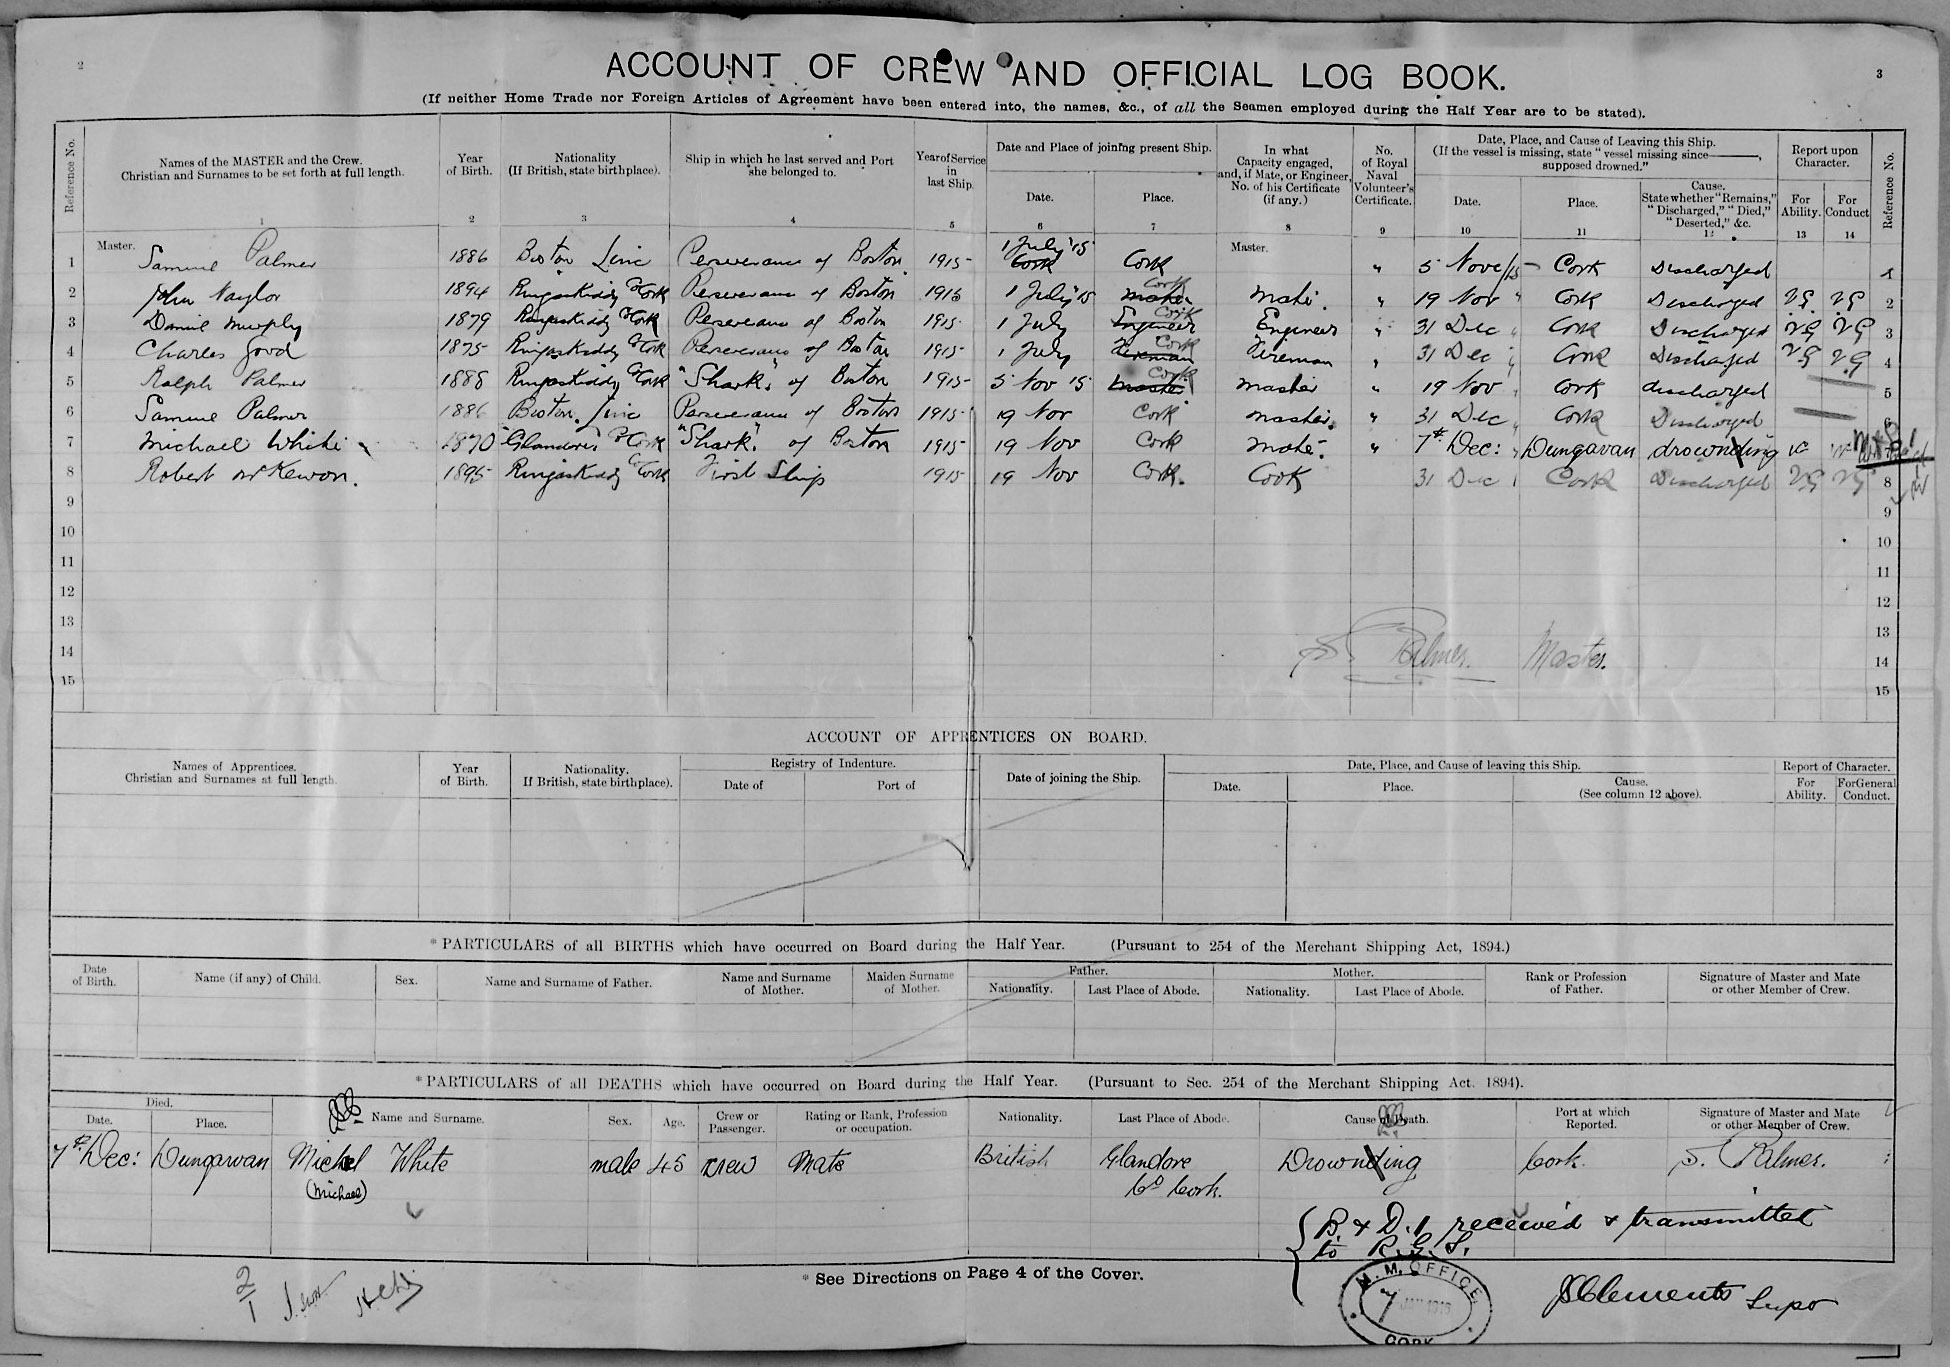 2
3
ACCOUNT OF CREW AND OFFICIAL LOG BOOK.
(If neither Home Trade nor Foreign Articles of Agreement have been entered into, the names, &c., of all the Seamen employed during the Half Year are to be stated).
Reference No. Names of the MASTER and the Crew. Christian and Surnames to be set forth at full length. Year of Birth. Nationality (If British, state birthplace). Ship in which he last served and Port she belonged to. Year of Service in last Ship. Date and Place of joining present Ship. Date. Place. In what Capacity engaged, and, if Mate, or Engineer, No. of his Certificate (if any.) No. of Royal Naval Volunteer's Certificate. Date, Place, and Cause of Leaving this Ship. (If the vessel is missing, state "vessel missing since——, supposed drowned." Date. Place. Cause. State whether "Remains," "Discharged," "Died," "Deserted," &c. Report upon Character. For Ability. For Conduct Reference No.
1 2 3 4 5 6 7 8 9 10 11 12 13 14
1 Master. Samuel Palmer 1886 Boston Linc Perseverance of Boston 1915 1 July '15 Cork Cork Master. " 5 Nove/15 Cork Discharged 1
2 John Naylor 1894 Ringaskiddy Co Cork Perseverance of Boston 1915 1 July '15 Mate Cork Mate. " 19 Nov " Cork Discharged V.G V.G 2
3 Daniel Murphy 1879 Ringaskiddy Co Cork Perseverance of Boston 1915 1 July Engineer Cork Engineer " 31 Dec " Cork Discharged V.G V G 3
4 Charles Good 1875 Ringaskiddy Co Cork Perseverance of Boston 1915 1 July Fireman Cork Fireman " 31 Dec " Cork Discharged V G V.G 4
5 Ralph Palmer 1888 Ringaskiddy Co Cork "Shark" of Boston 1915 5 Nov 15 Master Cork Master " 19 Nov " Cork discharged 5
6 Samuel Palmer 1886 Boston. Linc Perseverance of Boston 1915 19 Nov Cork Master " 31 Dec " Cork Discharged 6
7 Michael White 1870 Glandore Co Cork "Shark". of Boston 1915 19 Nov Cork Mate. " 7th Dec: Dungavan drownding
8 Robert McKewon. 1895 Ringaskiddy Co Cork First Ship 1915 19 Nov Cork. Cook 31 Dec " Cork Discharged V.G V.G 8
9 9
10 10
11 11
12 12
13 13
14 S. Palmer. Master. 14
15 15
ACCOUNT OF APPRENTICES ON BOARD.
Names of Apprentices. Christian and Surnames at full length. Year of Birth. Nationality. If British, state birthplace). Registry of Indenture. Date of Port of Date of joining the Ship. Date, Place, and Cause of leaving this Ship. Date. Place. Cause. (See column 12 above). Report of Character. For Ability. For General Conduct.
*PARTICULARS of all BIRTHS which have occurred on Board during the Half Year. (Pursuant to 254 of the Merchant Shipping Act, 1894.)
Date of Birth. Name (if any) of Child. Sex. Name and Surname of Father. Name and Surname of Mother. Maiden Surname of Mother. Father. Nationality. Last Place of Abode. Mother. Nationality. Last Place of Abode. Rank or Profession of Father. Signature of Master and Mate or other Member of Crew.
*PARTICULARS of all DEATHS which have occurred on Board during the Half Year. (Pursuant to Sec. 254 of the Merchant Shipping Act. 1894).
Died. Date. Place. Name and Surname. Sex. Age. Crew or Passenger. Rating or Rank, Profession or occupation. Nationality. Last Place of Abode. Cause of Death. Port at which Reported. Signature of Master and Mate or other Member of Crew.
7th Dec: Dungarvan Michel White male 45 crew Mate British Glandore Drownding Cork. S. Palmer.
(Michael) Co Cork.
B. & D.1 received & transmitted
to R.G.S.
* See Directions on Page 4 of the Cover.
M.M. OFFICE
7 JAN 1916
CORK
JSClements Supr
2/1